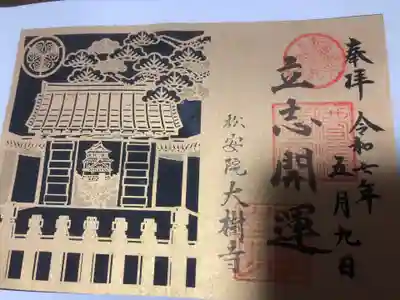 奉拝
令和七年
五月九日
立志開運
松安院
大樹寺